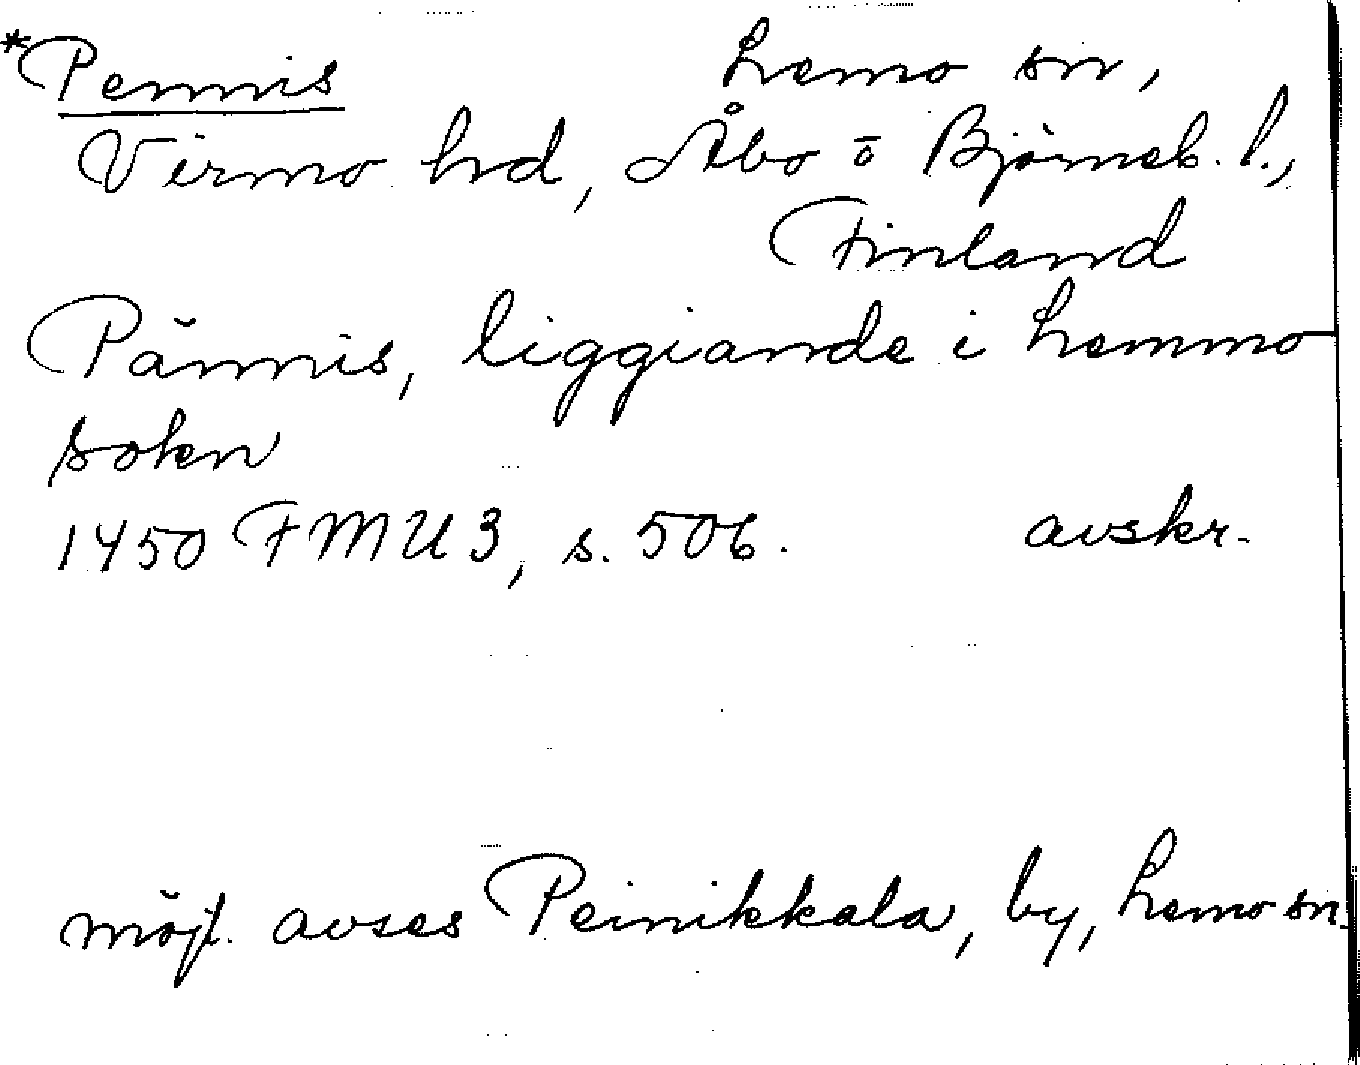 *Pennis Lemo sn,
Virmo hd, Åbo o Björneb. l.,
Finland
Pännis, liggiande i Lemmo
sokn
1450 FMU 3, s. 506. avskr.
möjl. avses Peinikkala, by, Lemo sn.